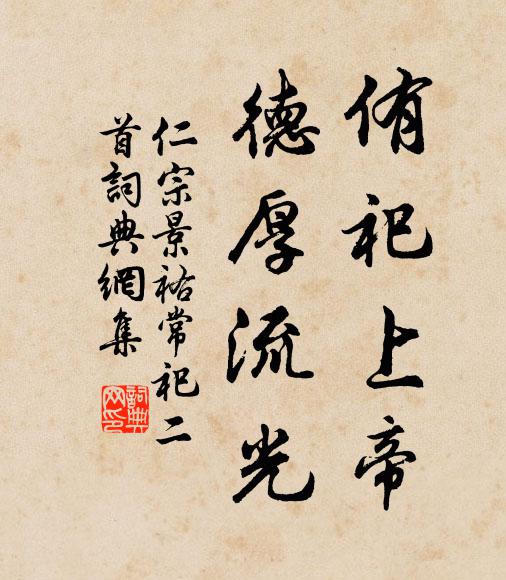 侑祀上帝
德厚流光
仁宗景祐常祀二
首詞典網集
詞典
网印